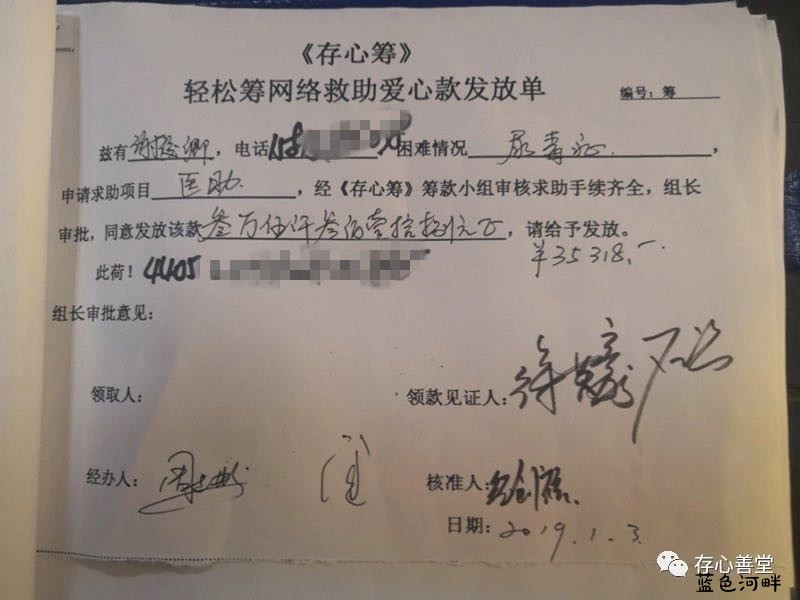 《存心筹》
轻松筹网络救助爱心款发放单
编号：筹
兹有谢 卿，电话 ，困难情况 尿毒症，
申请求助项目 医助 ，经《存心筹》筹款小组审核求助手续齐全，组长
审批，同意发放该款叁万伍仟叁佰壹拾捌元正，请给予发放。
￥35318.-
此荷！4405
组长审批意见：
领取人：
领款见证人：
经办人：
核准人：
日期：2019.1.3
存心善堂
蓝色河畔